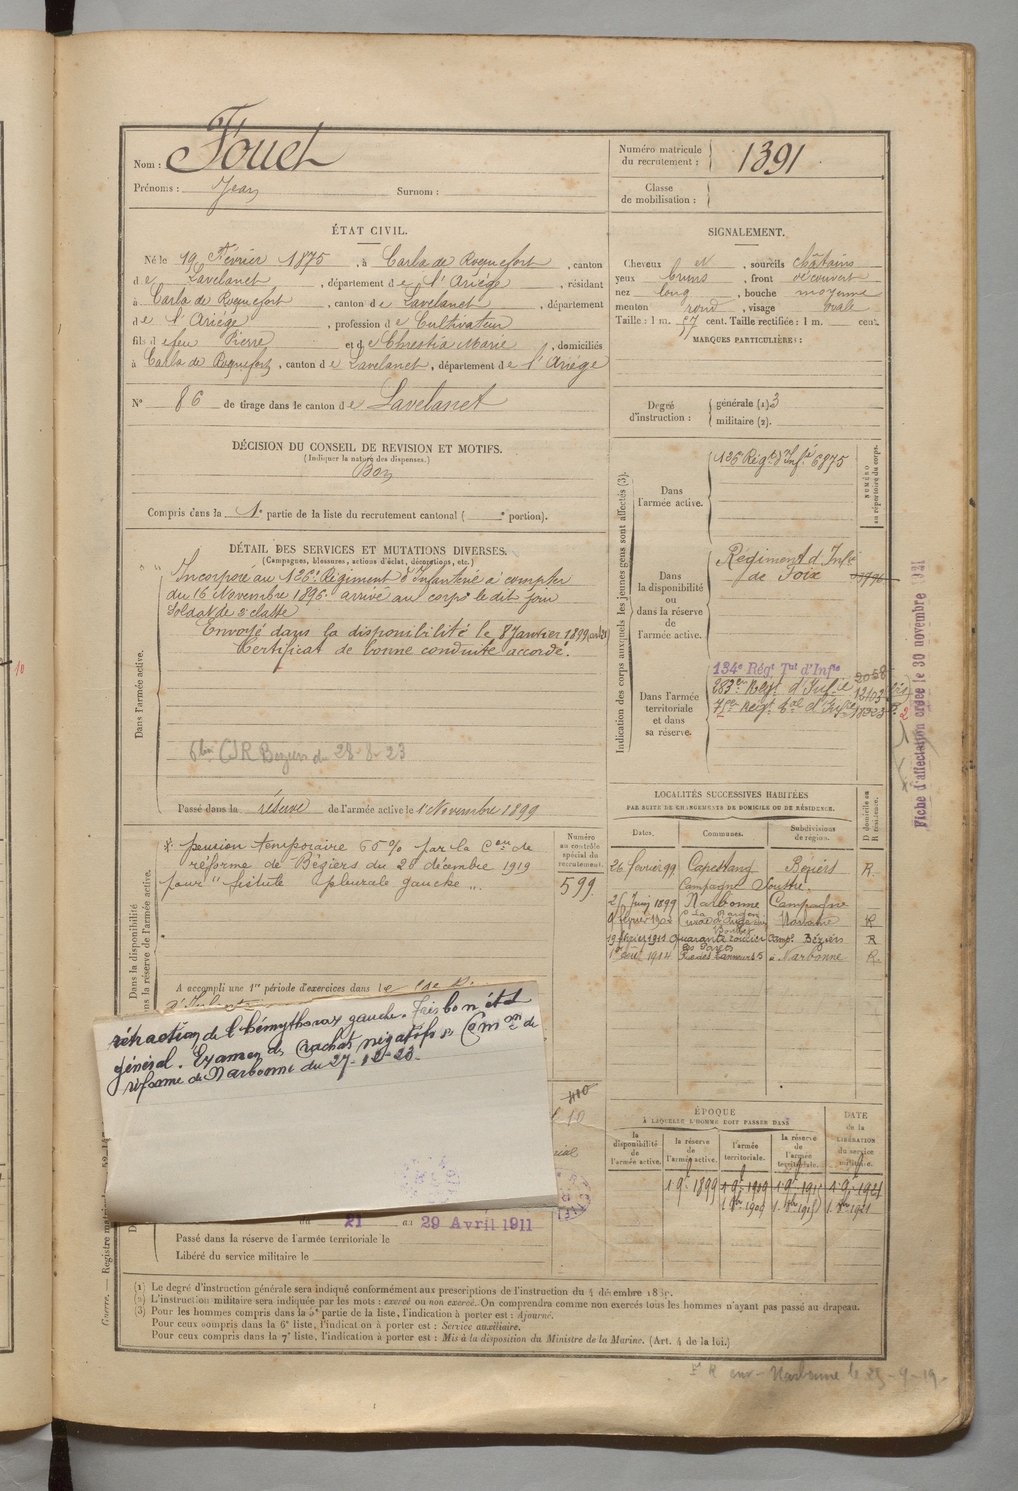 Nom : Fouet
Prénoms : Jean Surnom :
Numéro matricule du recrutement : 1391
Classe de mobilisation :
ÉTAT CIVIL.
Né le 19 Février 1875, à Carla de Roquefort, canton
de Lavelanet, département de l'Ariège, résidant
à Carla de Roquefort, canton de Lavelanet, département
de l'Ariège, profession de Cultivateur
fils de feu Pierre et de Chrestia Marie, domiciliés
à Carla de Roquefort, canton de Lavelanet, département de l'Ariège
N° 86 de tirage dans le canton de Lavelanet
SIGNALEMENT.
Cheveux et, sourcils châtains
yeux bruns, front découvert
nez long, bouche moyenne
menton rond, visage ovale
Taille : 1 m. 57 cent. Taille rectifiée : 1 m. cent.
MARQUES PARTICULIÈRES :
Degré d'instruction : générale (1) 3
militaire (2).
DÉCISION DU CONSEIL DE REVISION ET MOTIFS.
(Indiquer la nature des dispenses.)
Bon
Compris dans la 1e partie de la liste du recrutement cantonal ( e portion).
DÉTAIL DES SERVICES ET MUTATIONS DIVERSES.
(Campagnes, blessures, actions d'éclat, décorations, etc.)
Dans l'armée active.
Incorporé au 126e Régiment d'Infanterie à compter
du 16 Novembre 1896. arrivé au corps le dit jour
Soldat de 2e classe
Envoyé dans la disponibilité le 8 Janvier 1899
Certificat de bonne conduite accordé.
CSR Béziers du 28-8-23
Passé dans la réserve de l'armée active le 1 Novembre 1899
Indication des corps auxquels les jeunes gens sont affectés (3).
NUMÉRO au répertoire du corps.
Dans l'armée active.
Régt d'Infie 6875
Dans la disponibilité ou dans la réserve de l'armée active.
Régiment d'Infie
de Foix
Dans l'armée territoriale et dans sa réserve.
134e Régt Tal d'Infie 2058
283eme Régt d'Infie 12403
Régt Tal d'Infie
Fiche d'affectation créée le 30 novembre 1921
LOCALITÉS SUCCESSIVES HABITÉES
PAR SUITE DE CHANGEMENTS DE DOMICILE OU DE RÉSIDENCE.
Dates. Communes. Subdivisions de région. D domicile ou R résidence.
26 Février 99 Capestang Béziers R.
Campagne Soustre.
26 Juin 1899 Narbonne Campagne
9 février 1902 Narbonne R
19 février 1911 Quarante Béziers R
1914 5 Narbonne R
Dans la disponibilité
ou dans la réserve de l'armée active.
Numéro au contrôle spécial du recrutement.
599
pension temporaire 65% par la Con de
réforme de Béziers du 20 décembre 1919
pour "fistule pleurale gauche".
A accompli une 1re période d'exercices dans le
rétraction de l'hémythorax gauche. Très bon état
général. Examen des Crachats négatifs Comon de
réforme de Narbonne du 27-12-23.
du 21 au 29 Avril 1911
Passé dans la réserve de l'armée territoriale le
Libéré du service militaire le
ÉPOQUE
À LAQUELLE L'HOMME DOIT PASSER DANS
la disponibilité de l'armée active. la réserve de l'armée active. l'armée territoriale. la réserve de l'armée territoriale.
DATE de la LIBÉRATION du service militaire.
1 9 1899 1 9 1909 1 9 1915 1 9 1921
(1) Le degré d'instruction générale sera indiqué conformément aux prescriptions de l'instruction du 4 décembre 1889.
(2) L'instruction militaire sera indiquée par les mots : exercé ou non exercé. On comprendra comme non exercés tous les hommes n'ayant pas passé au drapeau.
(3) Pour les hommes compris dans la 5e partie de la liste, l'indication à porter est : Ajourné.
Pour ceux compris dans la 6e liste, l'indication à porter est : Service auxiliaire.
Pour ceux compris dans la 7e liste, l'indication à porter est : Mis à la disposition du Ministre de la Marine. (Art. 4 de la loi.)
Narbonne le 25-9-19-